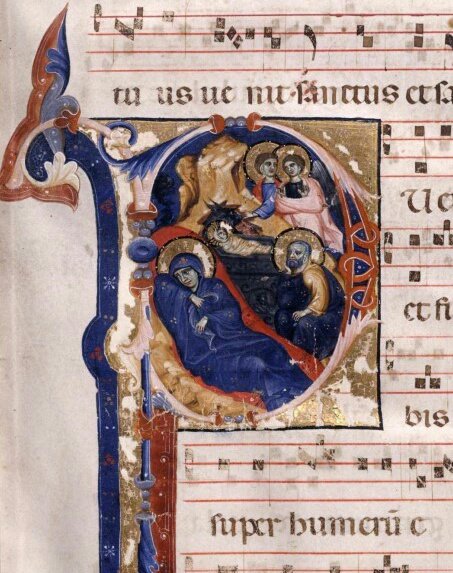 tu us ue nit sanctus et sa
P
Ue
et fi
bis
super humerū e